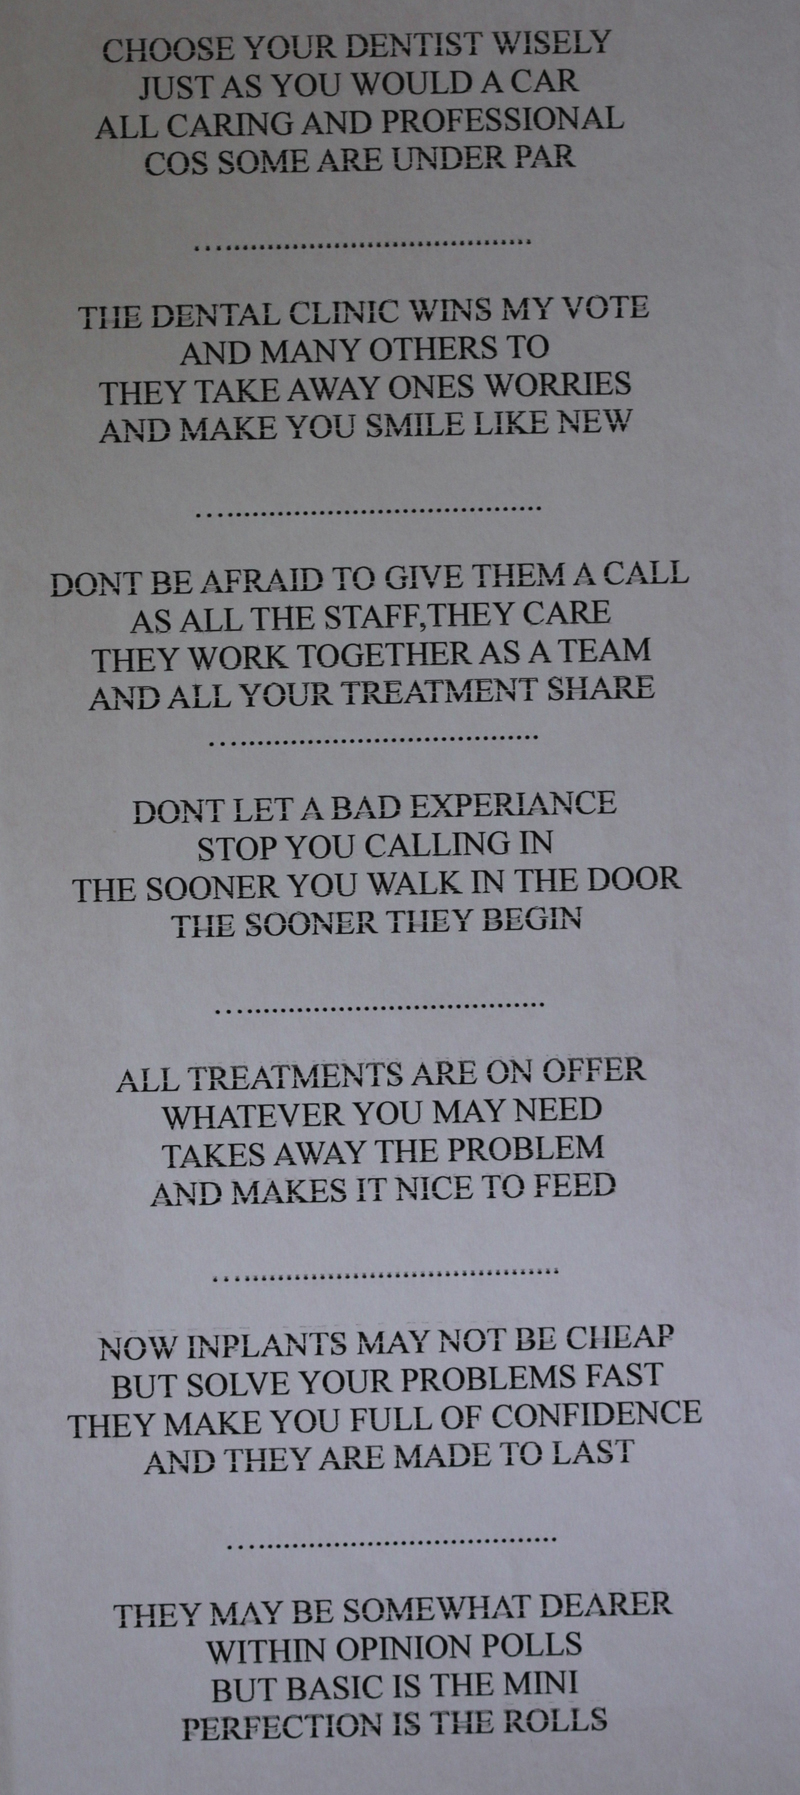 CHOOSE YOUR DENTIST WISELY
JUST AS YOU WOULD A CAR
ALL CARING AND PROFESSIONAL
COS SOME ARE UNDER PAR
.......................................
THE DENTAL CLINIC WINS MY VOTE
AND MANY OTHERS TO
THEY TAKE AWAY ONES WORRIES
AND MAKE YOU SMILE LIKE NEW
.......................................
DONT BE AFRAID TO GIVE THEM A CALL
AS ALL THE STAFF,THEY CARE
THEY WORK TOGETHER AS A TEAM
AND ALL YOUR TREATMENT SHARE
.......................................
DONT LET A BAD EXPERIANCE
STOP YOU CALLING IN
THE SOONER YOU WALK IN THE DOOR
THE SOONER THEY BEGIN
.......................................
ALL TREATMENTS ARE ON OFFER
WHATEVER YOU MAY NEED
TAKES AWAY THE PROBLEM
AND MAKES IT NICE TO FEED
.......................................
NOW INPLANTS MAY NOT BE CHEAP
BUT SOLVE YOUR PROBLEMS FAST
THEY MAKE YOU FULL OF CONFIDENCE
AND THEY ARE MADE TO LAST
.......................................
THEY MAY BE SOMEWHAT DEARER
WITHIN OPINION POLLS
BUT BASIC IS THE MINI
PERFECTION IS THE ROLLS